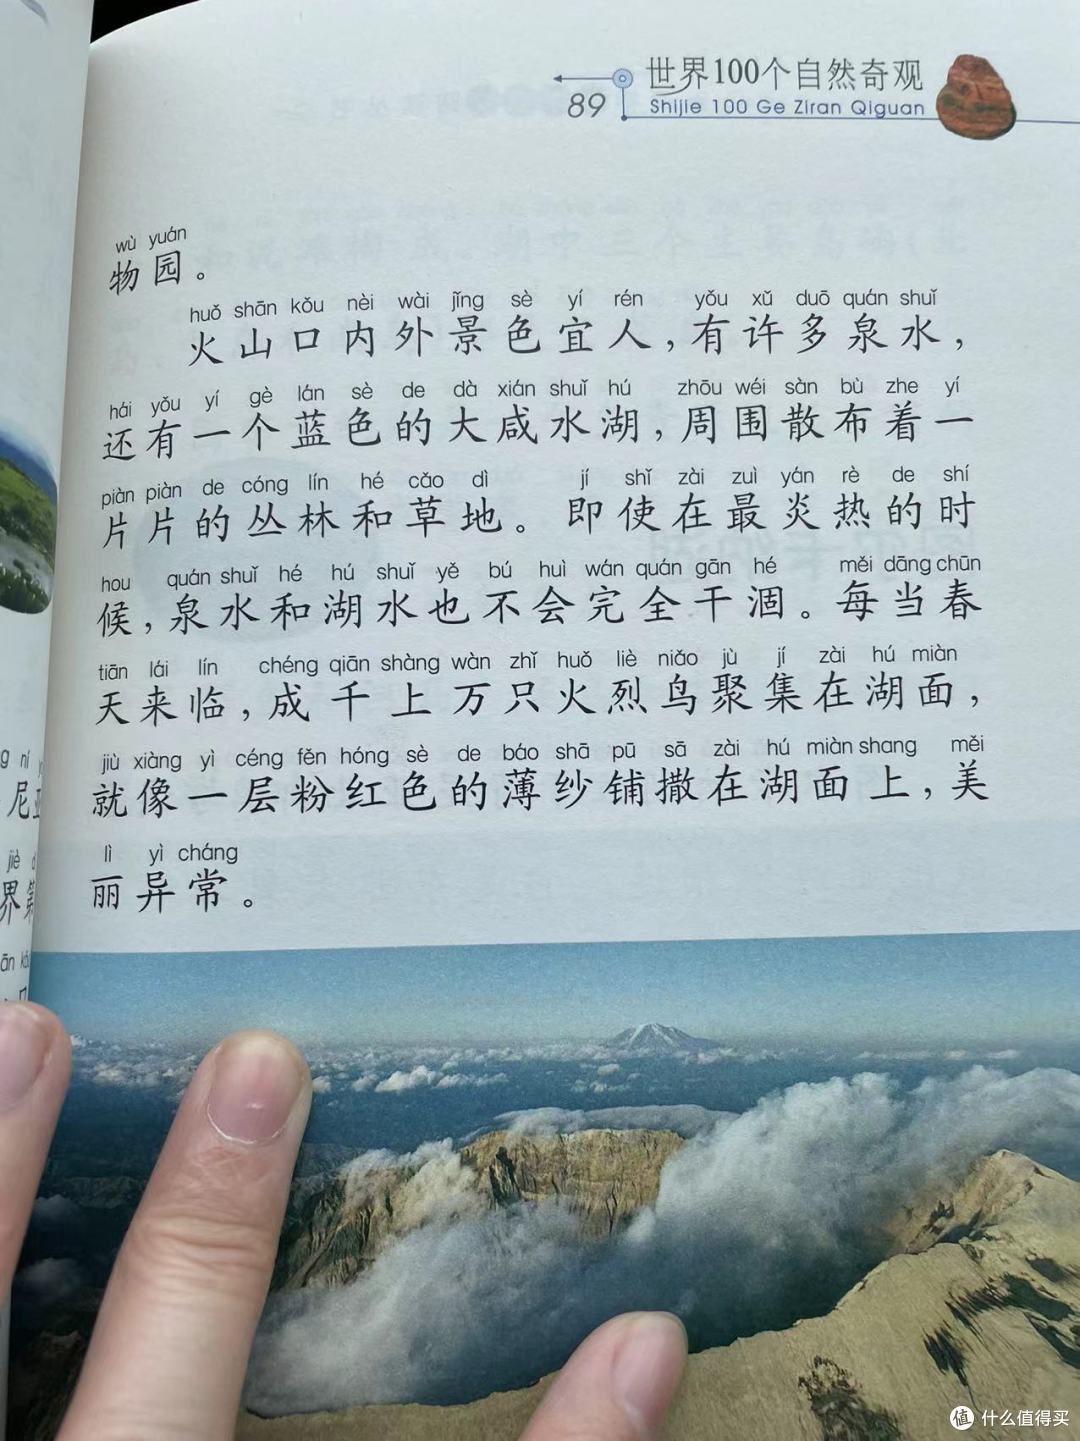 世界100个自然奇观
89
Shijie 100 Ge Ziran Qiguan
wù yuán
物园。
huǒ shān kǒu nèi wài jǐng sè yí rén yǒu xǔ duō quán shuǐ
火山口内外景色宜人，有许多泉水，
hái yǒu yí gè lán sè de dà xián shuǐ hú zhōu wéi sàn bù zhe yí
还有一个蓝色的大咸水湖，周围散布着一
piàn piàn de cóng lín hé cǎo dì jí shǐ zài zuì yán rè de shí
片片的丛林和草地。即使在最炎热的时
hou quán shuǐ hé hú shuǐ yě bú huì wán quán gān hé měi dāng chūn
候，泉水和湖水也不会完全干涸。每当春
tiān lái lín chéng qiān shàng wàn zhǐ huǒ liè niǎo jù jí zài hú miàn
天来临，成千上万只火烈鸟聚集在湖面，
jiù xiàng yì céng fěn hóng sè de báo shā pū sā zài hú miàn shang měi
就像一层粉红色的薄纱铺撒在湖面上，美
lì yì cháng
丽异常。
ní
尼亚
jiè
界第
值 什么值得买